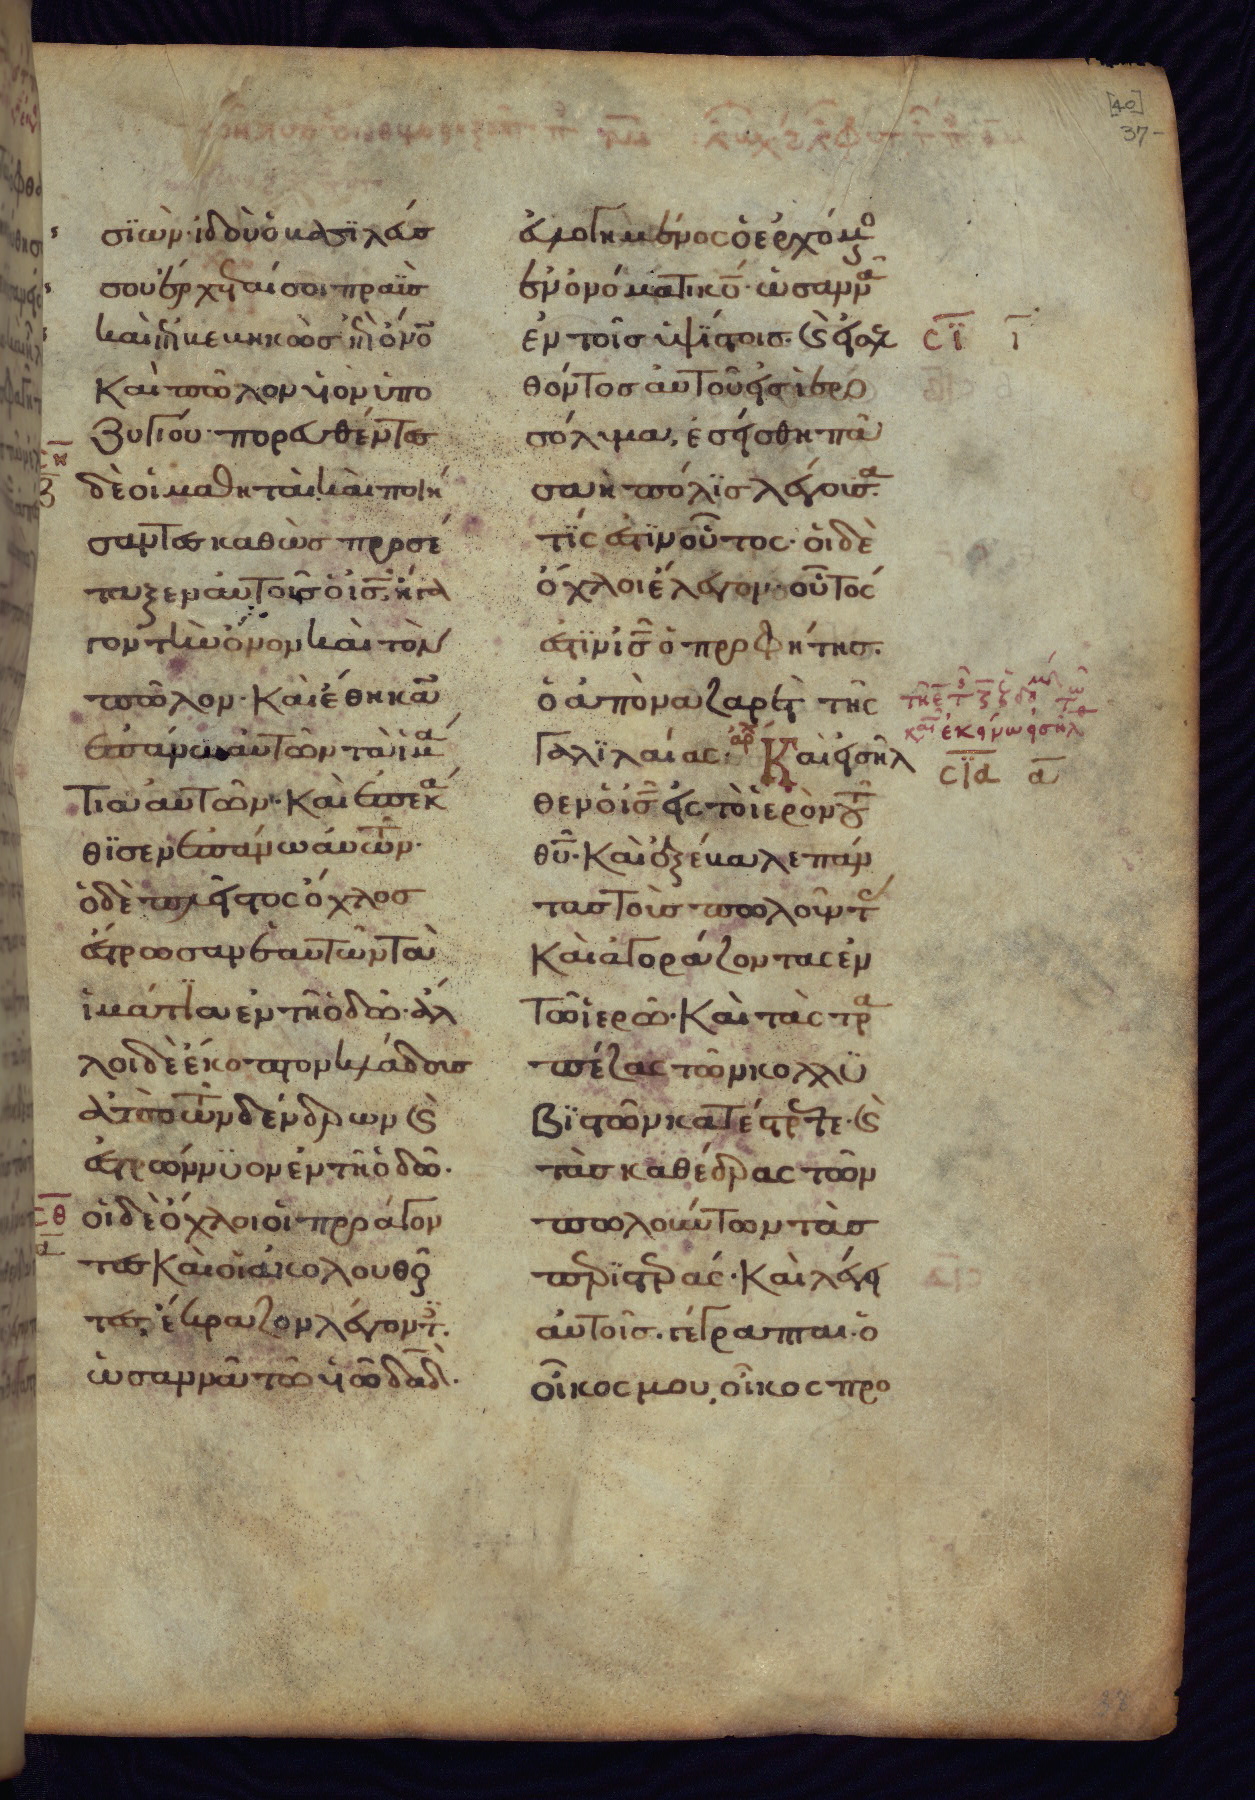 [40]
37-
σϊών· ἰδοὺ ὁ βασϊλεύς
σου ἔρχεταί σοι πραῢς
καὶ ἐπιβεβηκὼς ἐπὶ ὄνο̅
Καὶ πῶλον υἱὸν ὑπο
ζυγίου· πορευθέντες
δὲ οἱ μαθηταὶ καὶ ποιή
σαντες καθὼς προσέ
ταξεν αὐτοῖς ὁ ι̅ς̅, ἤγα
γον τὴν ὄνον καὶ τὸν
πῶλον· Καὶ ἔθηκα̅
ἐπάνω αὐτῶν τὰ ἱμά
τια αὐτῶν· Καὶ ἐπεκά
θϊσεν ἐπάνω αὐτῶν·
ὁ δὲ πλεῖστος ὄχλος
ἔστρωσαν ἑαυτῶν τὰ
ἱμάτϊα ἐν τῇ ὁδῶ· ἄλ
λοι δὲ ἔκοπτον κλάδους
ἀπὸ τῶν δένδρων καὶ
ἐστρώννϋον ἐν τῇ ὁδῶ·
οἱ δὲ ὄχλοι οἱ προάγον
τες Καὶ οἱ ἀκολουθοῦ
τες, ἔκραζον λέγοντες·
ὡσαννὰ τῶ υἱῶ δα̅δ̅·
εὐλογημένος ὁ ἐρχόμενος
ἐν ὀνόματι κ̅υ̅· ὡσαννὰ
ἐν τοῖς ὑψίστοις· καὶ εἰσελ
θόντος αὐτοῦ εἰς ἱερο
σόλυμα, ἐσείσθη πᾶ
σα ἡ πόλϊς λέγουσα·
τίς ἐστϊν οὗτος· οἱ δὲ
ὄχλοι ἔλεγον· οὗτός
ἐστϊν ι̅ς̅ ὁ προφήτης·
ὁ ἀπὸ ναζαρὲτ τῆς
Γαλϊλαίας· Καὶ εἰσῆλ
θεν ὁ ι̅ς̅ εἰς τὸ ἱερὸν τοῦ
θ̅υ̅· Καὶ ἐξέβαλε πάν
τας τοὺς πωλοῦντας
Καὶ ἀγοράζοντας ἐν
τῶ ἱερῶ· Καὶ τὰς τρα
πέζας τῶν κολλϋ
βϊστῶν κατέστρεψε· καὶ
τὰς καθέδρας τῶν
πωλούντων τὰς
περϊστεράς· Καὶ λέγει
αὐτοῖς. γέγραπται· ὁ
οἶκος μου, οἶκος προ
σ̅η̅
ζ
σ̅θ̅
α
σ̅ϊ̅ ι̅
σ̅ϊ̅α̅ α̅